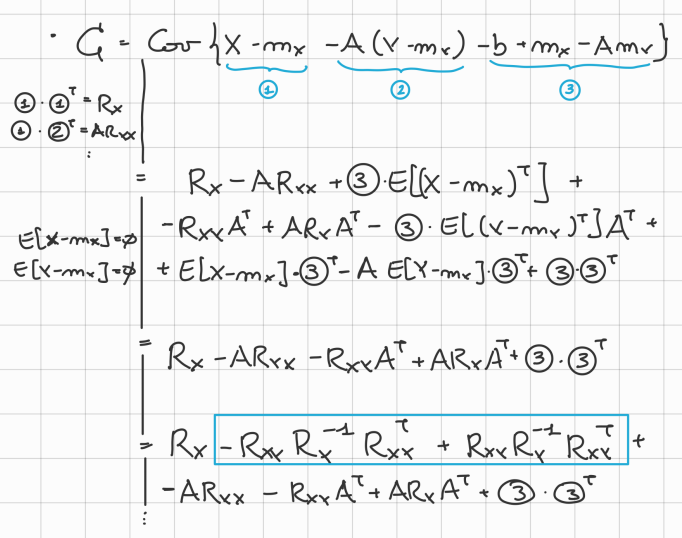 · C = Cov { X - mₓ - A (Y - mᵧ) - b + mₓ - A mᵧ }
① ② ③
① · ①ᵀ = Rₓ
① · ②ᵀ = ARᵧₓ
⋮
= Rₓ - ARᵧₓ + ③ · E[(X - mₓ)ᵀ] +
- Rₓᵧ Aᵀ + ARᵧ Aᵀ - ③ · E[(Y - mᵧ)ᵀ] Aᵀ +
E[X - mₓ] = ∅
E[Y - mᵧ] = ∅
+ E[X - mₓ] · ③ᵀ - A E[Y - mᵧ] · ③ᵀ + ③ · ③ᵀ
= Rₓ - ARᵧₓ - Rₓᵧ Aᵀ + ARᵧ Aᵀ + ③ · ③ᵀ
= Rₓ - Rₓᵧ Rᵧ⁻¹ Rₓᵧᵀ + Rₓᵧ Rᵧ⁻¹ Rₓᵧᵀ +
- ARᵧₓ - Rₓᵧ Aᵀ + ARᵧ Aᵀ + ③ · ③ᵀ
⋮